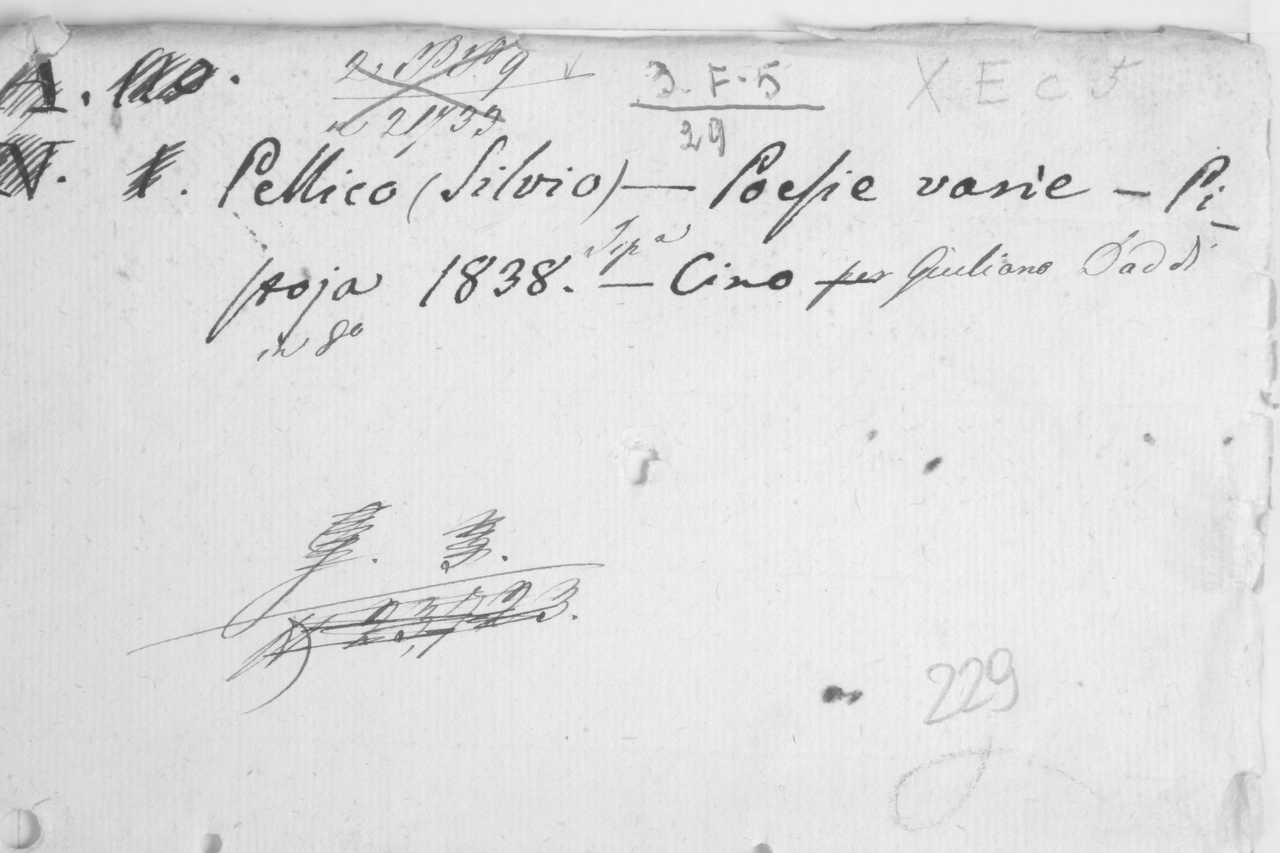 3. F. 5
29
X E c 5
Pellico (Silvio) — Poesie varie — Pi-
stoja 1838. — Tip.a Cino per Giuliano Daddi
in 8o
N 23,723.
229